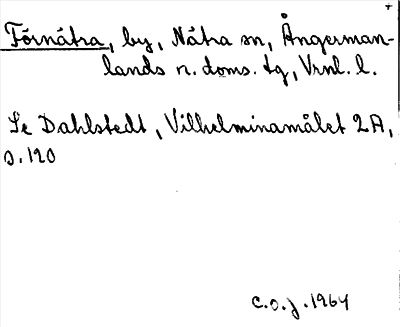 Förnätra, by, Nätra sn, Ångerman-
lands n. doms. tg, Vrnl. l.
Se Dahlstedt, Vilhelminamålet 2A,
s. 120
c.o.j. 1964